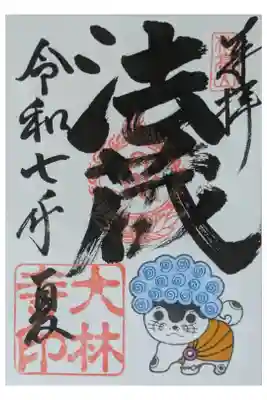 奉拝
法蔵
令和七年
夏
大林
寺印